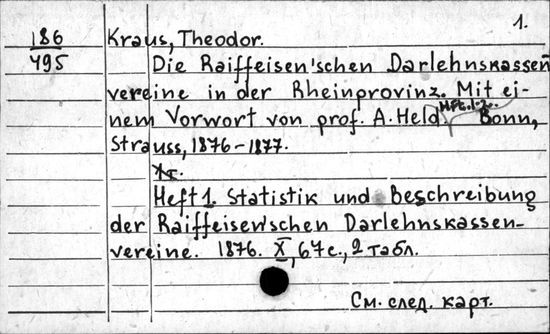 1.
186
495
Kraus, Theodor.
Die Raiffeisen'schen Darlehnskassen
vereine in der Rheinprovinz. Mit ei-
nem Vorwort von prof. A. Held. Hft. 1-2. Bonn,
Strauss, 1876-1877.
Heft 1. Statistik und Beschreibung
der Raiffeisen'schen Darlehnskassen-
vereine. 1876. X, 67 с., 2 табл.
См. след. карт.